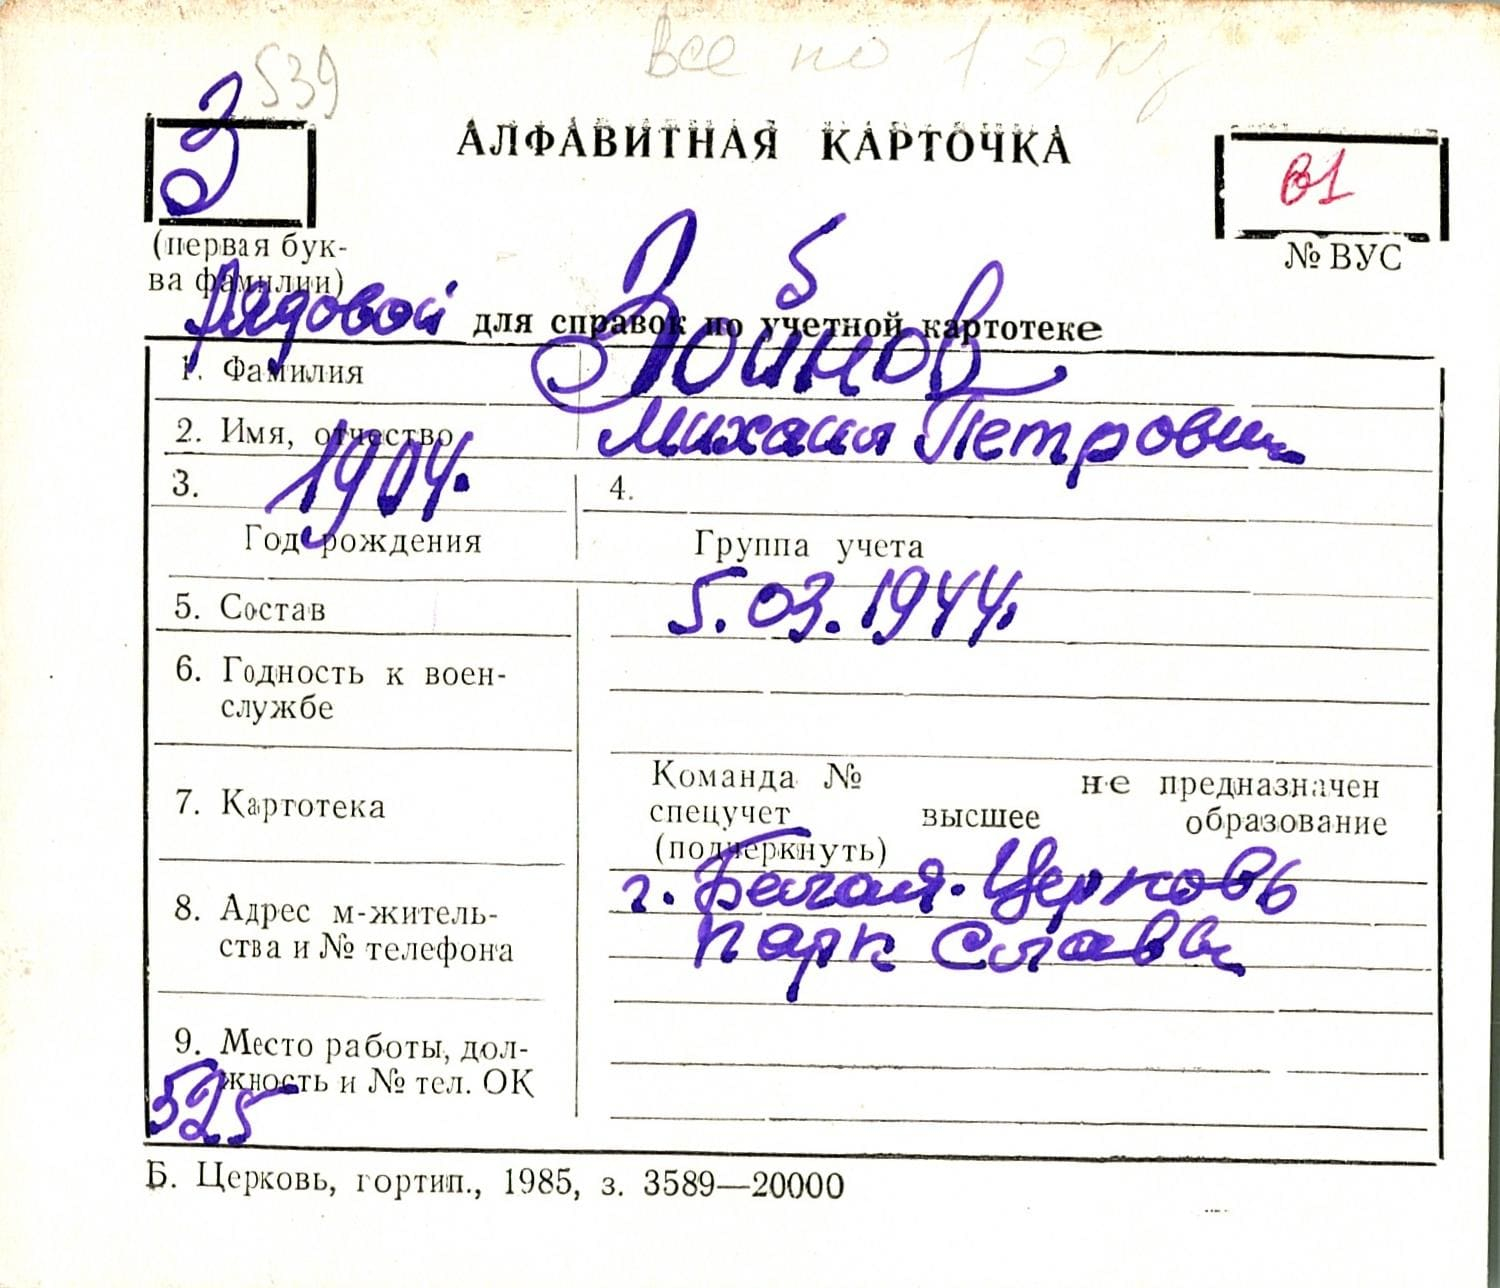 539
Все по 1
З
АЛФАВИТНАЯ КАРТОЧКА
в1
(первая бук-
ва фамилии)
№ ВУС
Рядовой
для справок по учетной картотеке
б
1. Фамилия
Зойнов
2. Имя, отчество
Михаил Петрович
3. 1904.
4.
Год рождения
Группа учета
5. Состав
5.03.1944.
6. Годность к воен-
службе
7. Картотека
Команда № не предназначен
спецучет высшее образование
(подчеркнуть)
8. Адрес м-житель-
ства и № телефона
г. Белая-Церковь
парк Славы
9. Место работы, дол-
жность и № тел. ОК
525
Б. Церковь, гортип., 1985, з. 3589—20000